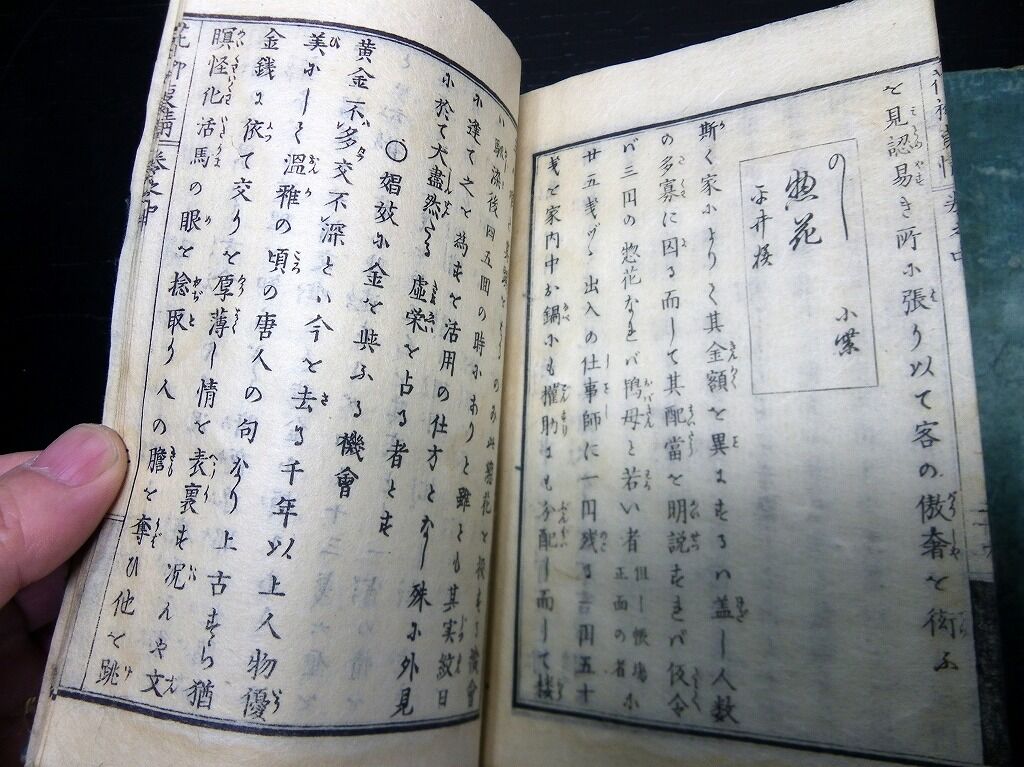 を見認易き所に張り以て客の傲奢を衒ふ
のし
惣花
小紫
平井様
斯く家により〱其金額を異にするハ盖し人数
の多寡に因る而して其配當を明説すれバ仮令
バ三円の惣花なれバ鴇母と若い者
但し帳場
正面の者
に
廿五銭づゝ出入の仕事師に一円残る壱円五十
銭を家内中お鍋にも権助にも分配し而して楼
馴染後四五回の時にありと雖ども其実紋日
に逢て之を為すを活用の仕方となし殊に外見
に於て大盡然たる虚栄を占る者とす
○娼妓に金を與ふる機會
黄金不多交不深とハ今を去る千年以上人物優
美にして温雅の頃の唐人の句なり上古すら猶
金銭に依て交りを厚薄し情を表裏す况んや文
瞑怪化活馬の眼を捻取り人の膽を奪ひ他を跳
巻之中